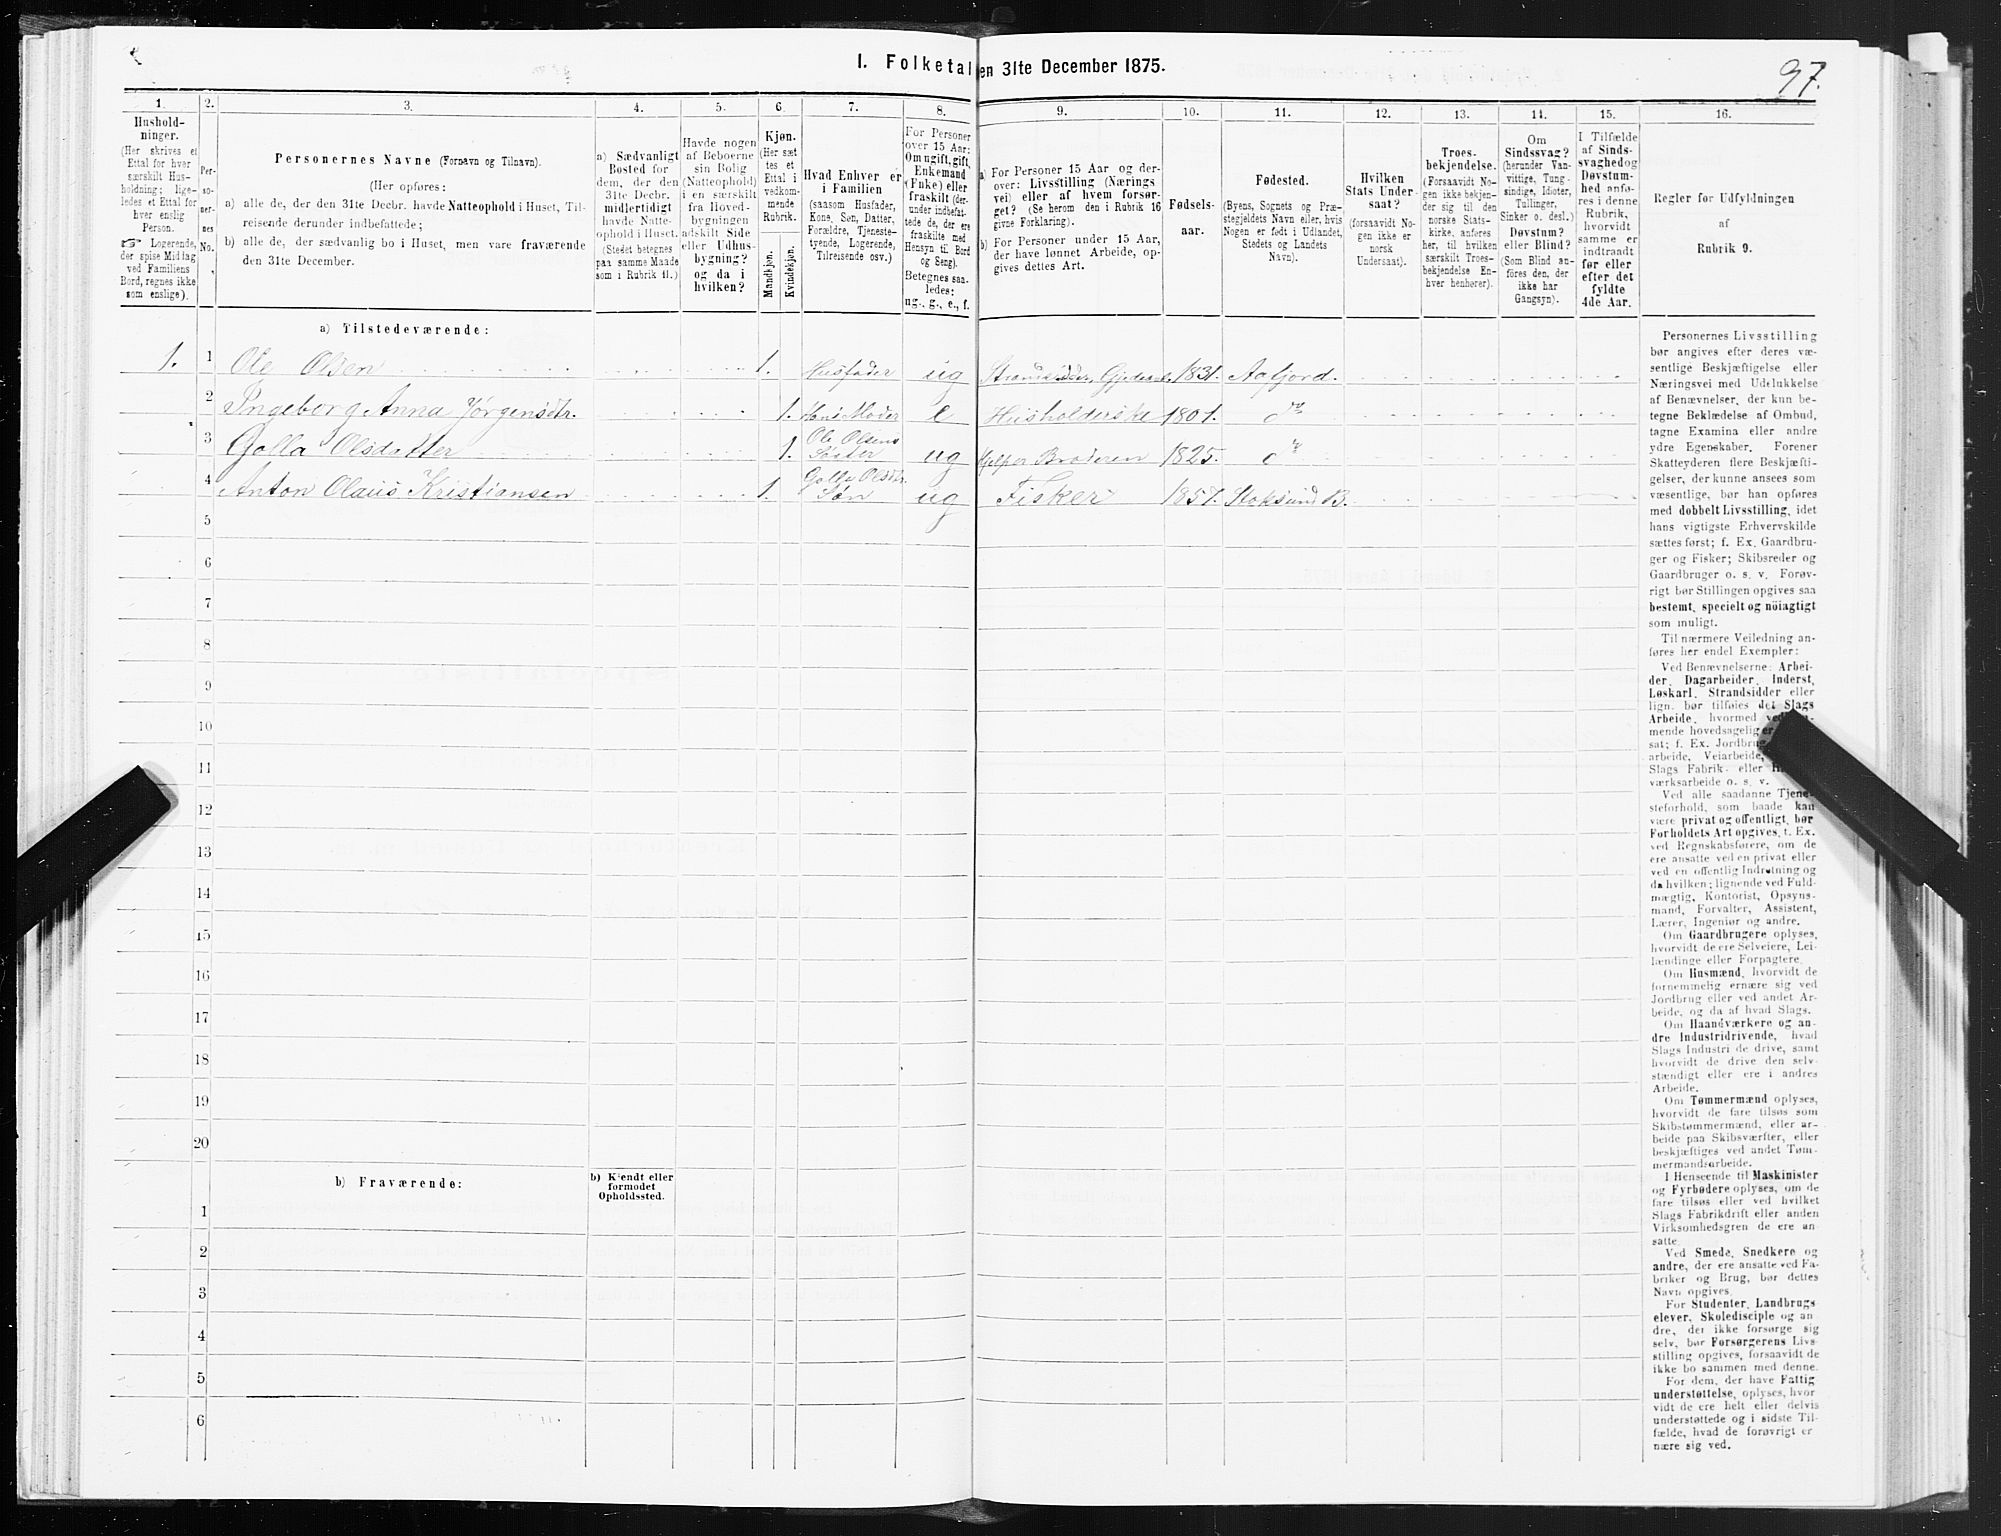 I. Folketal en 31te December 1875.
97.
1. 2. 3. 4. 5. 6. 7. 8. 9. 10. 11. 12. 13. 14. 15. 16.
Hushold-
ninger.
(Her skrives et
Ettal for hver
særskilt Hus-
holdning; lige-
ledes et Ettal for
hver enslig
Person.
☞ Logerende,
der spise Middag
ved Familiens
Bord, regnes ikke
som enslige).
Per-
so-
ner-
nes
No.
Personernes Navne (Fornavn og Tilnavn).
(Her opføres:
a) alle de, der den 31te Decbr. havde Natteophold i Huset, Til-
reisende derunder indbefattede;
b) alle de, der sædvanlig bo i Huset, men vare fraværende
den 31te December.
a) Sædvanligt
Bosted for
dem, der den
31te Decbr.
midlertidigt
havde Natte-
ophold i Huset.
(Stedet betegnes
paa samme Maade
som i Rubrik 11.)
Havde nogen
af Beboerne
sin Bolig
(Natteophold)
i en særskilt
fra Hoved-
bygningen
adskilt Side
eller Udhus-
bygning?
og da i
hvilken?
Kjøn.
(Her sæt
tes et
Ettal i
vedkom-
mende
Rubrik.
Mandkjøn.
Kvindekjøn.
Hvad Enhver er
i Familien
(saasom Husfader,
Kone, Søn, Datter,
Forældre, Tjeneste-
tyende, Logerende,
Tilreisende osv.)
For Personer
over 15 Aar:
Om ugift, gift,
Enkemand
(Enke) eller
fraskilt (der-
under indbefat-
tede de, der ere
fraskilte med
Hensyn til Bord
og Seng).
Betegnes saa-
ledes:
ug., g., e., f.
a) For Personer 15 Aar og der-
over: Livsstilling (Nærings
vei) eller af hvem forsør-
get? (Se herom den i Rubrik 16
givne Forklaring).
b) For Personer under 15 Aar,
der have lønnet Arbeide, op-
gives dettes Art.
Fødsels-
aar.
Fødested.
(Byens, Sognets og Præ-
stegjeldets Navn eller, hvis
Nogen er født i Udlandet,
Stedets og Landets
Navn).
Hvilken
Stats Under-
saat?
(forsaavidt No-
gen ikke er
norsk
Undersaat).
Troes-
bekjendelse.
(Forsaavidt No-
gen ikke bekjen-
der sig til den
norske Stats-
kirke, anføres
her, til hvilken
særskilt Troes-
bekjendelse En-
hver henhører).
Om
Sindssvag?
(herunder Van-
vittige, Tung-
sindige, Idioter,
Tullinger,
Sinker o. desl.)
Døvstum?
eller Blind?
(Som Blind an-
føres den, der
ikke har
Gangsyn).
I Tilfælde
af Sinds-
svaghed og
Døvstum-
hed anfø-
res i denne
Rubrik,
hvorvidt
samme er
indtraadt
før eller
efter det
fyldte
4de Aar.
Regler for Udfyldningen
af
Rubrik 9.
a) Tilstedeværende:
1. 1 Ole Olsen 1. Husfader ug 1831. Aafjord.
2 Ingeborg Anna Jørgensdtr. 1. Hans Moder e Husholderske 1801. do
3 Golla Olsdatter 1. Ole Olsens Søster ug Hjelper Broderen 1825. do
4 Anton Olaus Kristiansen 1. Golla Olsdtr. Søn ug Fisker 1857. Stoksund B.
5
6
7
8
9
10
11
12
13
14
15
16
17
18
19
20
b) Fraværende:
b) Kjendt eller
formodet
Opholdssted.
1
2
3
4
5
6
Personernes Livsstilling
bør angives efter deres væ-
sentlige Beskjæftigelse eller
Næringsvei med Udelukkelse
af Benævnelser, der kun be-
tegne Beklædelse af Ombud,
tagne Examina eller andre
ydre Egenskaber. Forener
Skatteyderen flere Beskjæfti-
gelser, der kunne ansees som
væsentlige, bør han opføres
med dobbelt Livsstilling, idet
hans vigtigste Erhvervskilde
sættes først; f. Ex. Gaardbru-
ger og Fisker; Skibsreder og
Gaardbruger o. s. v. Forøv-
rigt bør Stillingen opgives saa
bestemt, specielt og nöiagtigt
som muligt.
Til nærmere Veiledning an-
føres her endel Exempler:
Ved Benævnelserne: Arbei-
der, Dagarbeider, Inderst,
Løskarl, Strandsidder eller
lign. bør tilføies det Slags
Arbeide, hvormed
mende hovedsagelig er
sat; f. Ex. Jordbrug
arbeide, Veiarbeide,
Slags Fabrik- eller
værksarbeide o. s. v.
Ved alle saadanne Tjene-
steforhold, som baade kan
være privat og offentligt, bør
Forholdets Art opgives, t. Ex.
ved Regnskabsførere, om de
ere ansatte ved en privat eller
ved en offentlig Indretning og
da hvilken; lignende ved Fuld-
mægtig, Kontorist, Opsyns-
mand, Forvalter, Assistent,
Lærer, Ingeniør og andre.
Om Gaardbrugere oplyses,
hvorvidt de ere Selveiere, Lei-
lændinge eller Forpagtere.
Om Husmænd, hvorvidt de
fornemmelig ernære sig ved
Jordbrug eller ved andet Ar-
beide, og da af hvad Slags.
Om Haandværkere og an-
dre Industridrivende, hvad
Slags Industri de drive, samt
hvorvidt de drive den selv-
stændigt eller ere i andres
Arbeide.
Om Tømmermænd oplyses,
hvorvidt de fare tilsøs som
Skibstømmermænd, eller ar-
beide paa Skibsværfter, eller
beskjæftiges ved andet Tøm-
mermandsarbeide.
I Henseende til Maskinister
og Fyrbødere oplyses, om de
fare tilsøs eller ved hvilket
Slags Fabrikdrift eller anden
Virksomhedsgren de ere an-
satte.
Ved Smede, Snedkere og
andre, der ere ansatte ved Fa-
briker og Brug, bør dettes
Navn opgives.
For Studenter, Landbrugs
elever, Skoledisciple og an
dre, der ikke forsørge sig
selv, bør Forsørgerens Livs-
stilling opgives, forsaavidt de
ikke bo sammen med denne.
For dem, der have Fattig
understøttelse, oplyses, hvor
vidt de ere helt eller delvis
understøttede og i sidste Til-
fælde, hvad de forøvrigt er
nære sig ved.